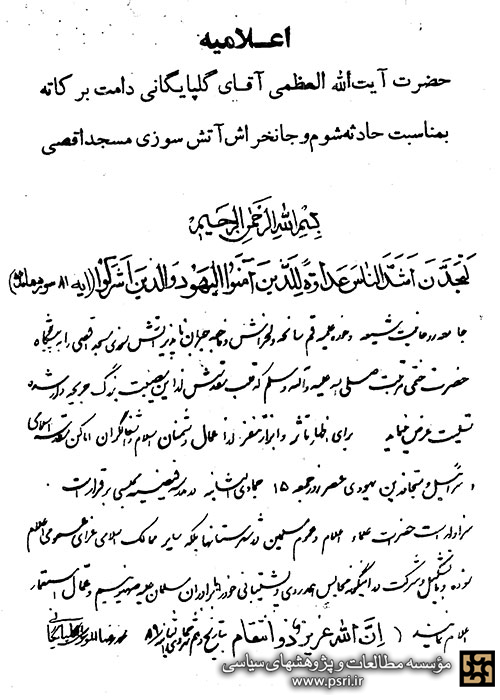 اعـلامیه
حضرت آیت‌الله العظمی آقای گلپایگانی دامت برکاته
بمناسبت حادثه شوم و جانخراش آتش سوزی مسجد اقصی
بسم الله الرحمن الرحیم
لتجدن اشد الناس عداوة للذین آمنوا الیهود والذین اشرکوا (آیه ۸۱ سوره مائده)
جامعه روحانیت شیعه و حوزه علمیه قم سانحه دلخراش و فاجعه جبران ناپذیر آتش سوزی مسجد اقصی را به پیشگاه
حضرت ختمی مرتبت صلی الله علیه و آله و سلم که قلب مقدسش از این مصیبت بزرگ جریحه دار شده
تسلیت عرض مینماید برای اظهار تأثر و ابراز تنفر از اعمال دشمنان اسلام و اشغالگران اماکن مقدسه اسلامی
اسرائیل و متجاوزین یهودی عصر روز جمعه ۱۵ جمادی الثانیه در مدرسه فیضیه مجلسی برقرار است
سزاوار است حضرات علماء اعلام و عموم مسلمین در شهرستانها بلکه سایر ممالک اسلامی عزای عمومی اعلام
نموده و با تشکیل و شرکت در اینگونه مجالس همدردی و پشتیبانی خود را از برادران مسلمان علیه صهیونیسم و عمال استعمار
اعلام نمایند ان الله عزیز ذو انتقام بتاریخ دهم جمادی الثانیه ۸۹ محمد رضا الموسوی الگلپایگانی
مؤسسه مطالعات و پژوهشهای سیاسی
www.psri.ir